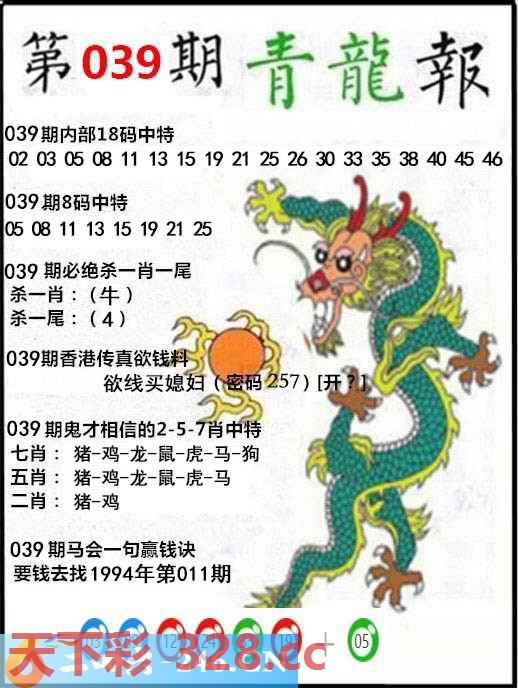 第039期 青龍報
039期内部18码中特
02 03 05 08 11 13 15 19 21 25 26 30 33 35 38 40 45 46
039期8码中特
05 08 11 13 15 19 21 25
039 期必绝杀一肖一尾
杀一肖：（牛）
杀一尾：（4）
039期香港传真欲钱料
欲线买媳妇（密码257）[开？]
039期鬼才相信的2-5-7肖中特
七肖： 猪-鸡-龙-鼠-虎-马-狗
五肖： 猪-鸡-龙-鼠-虎-马
二肖： 猪-鸡
039期马会一句赢钱诀
要钱去找1994年第011期
12 24 19 + 05
天下彩 328.cc